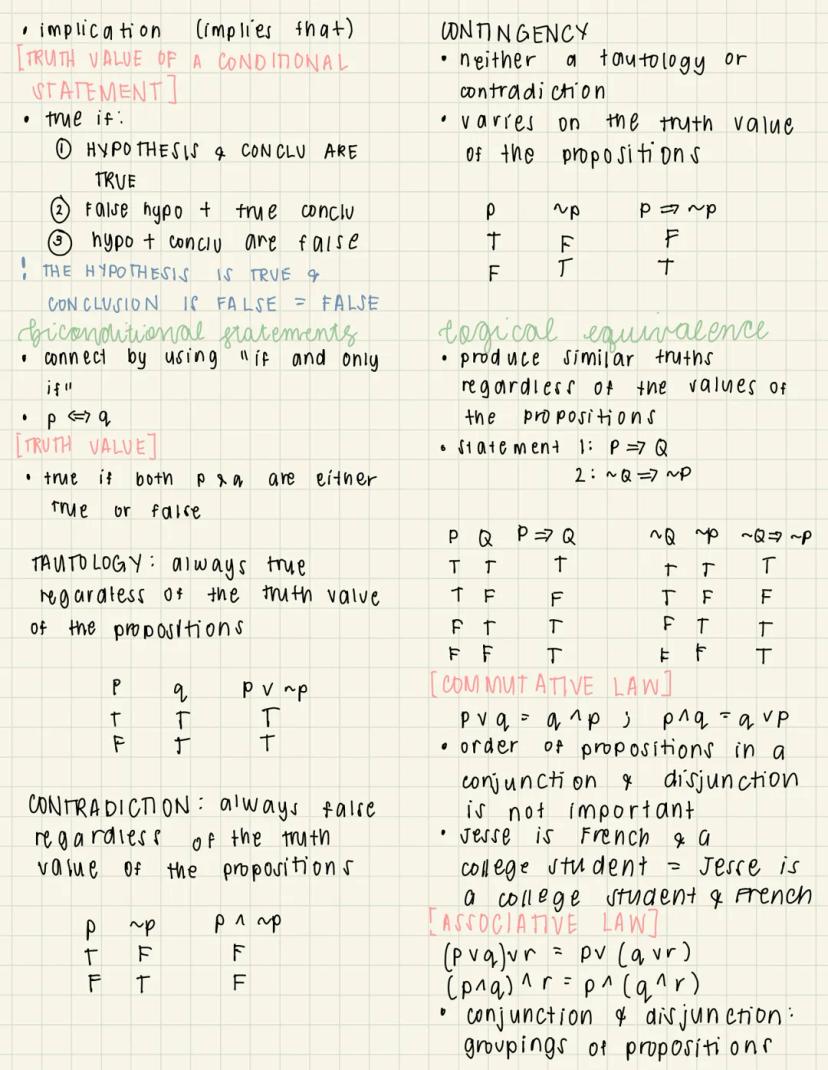 • implication (implies that)
[TRUTH VALUE OF A CONDITIONAL
STATEMENT]
• true if:
① HYPOTHESIS & CONCLU ARE
TRUE
② False hypo + true conclu
③ hypo + conclu are false
! THE HYPOTHESIS IS TRUE &
CONCLUSION IS FALSE = FALSE
biconditional statements
• connect by using "if and only
if"
• p ⇔ q
[TRUTH VALUE]
• true if both p & q are either
true or false
TAUTOLOGY: always true
regardless of the truth value
of the propositions
P q p ∨ ~p
T T T
F T T
CONTRADICTION: always false
regardless of the truth
value of the propositions
p ~p p ∧ ~p
T F F
F T F
CONTINGENCY
• neither a tautology or
contradiction
• varies on the truth value
of the propositions
P ~p p ⇒ ~p
T F F
F T T
Logical equivalence
• produce similar truths
regardless of the values of
the propositions
• statement 1: P ⇒ Q
2: ~Q ⇒ ~P
P Q P ⇒ Q ~Q ~P ~Q ⇒ ~P
T T T T T T
T F F T F F
F T T F T T
F F T F F T
[COMMUTATIVE LAW]
p ∨ q = q ∧ p ; p ∧ q = q ∨ p
• order of propositions in a
conjunction & disjunction
is not important
• Jesse is French & a
college student = Jesse is
a college student & French
[ASSOCIATIVE LAW]
(p ∨ q) ∨ r = p ∨ (q ∨ r)
(p ∧ q) ∧ r = p ∧ (q ∧ r)
• conjunction & disjunction:
groupings of propositions